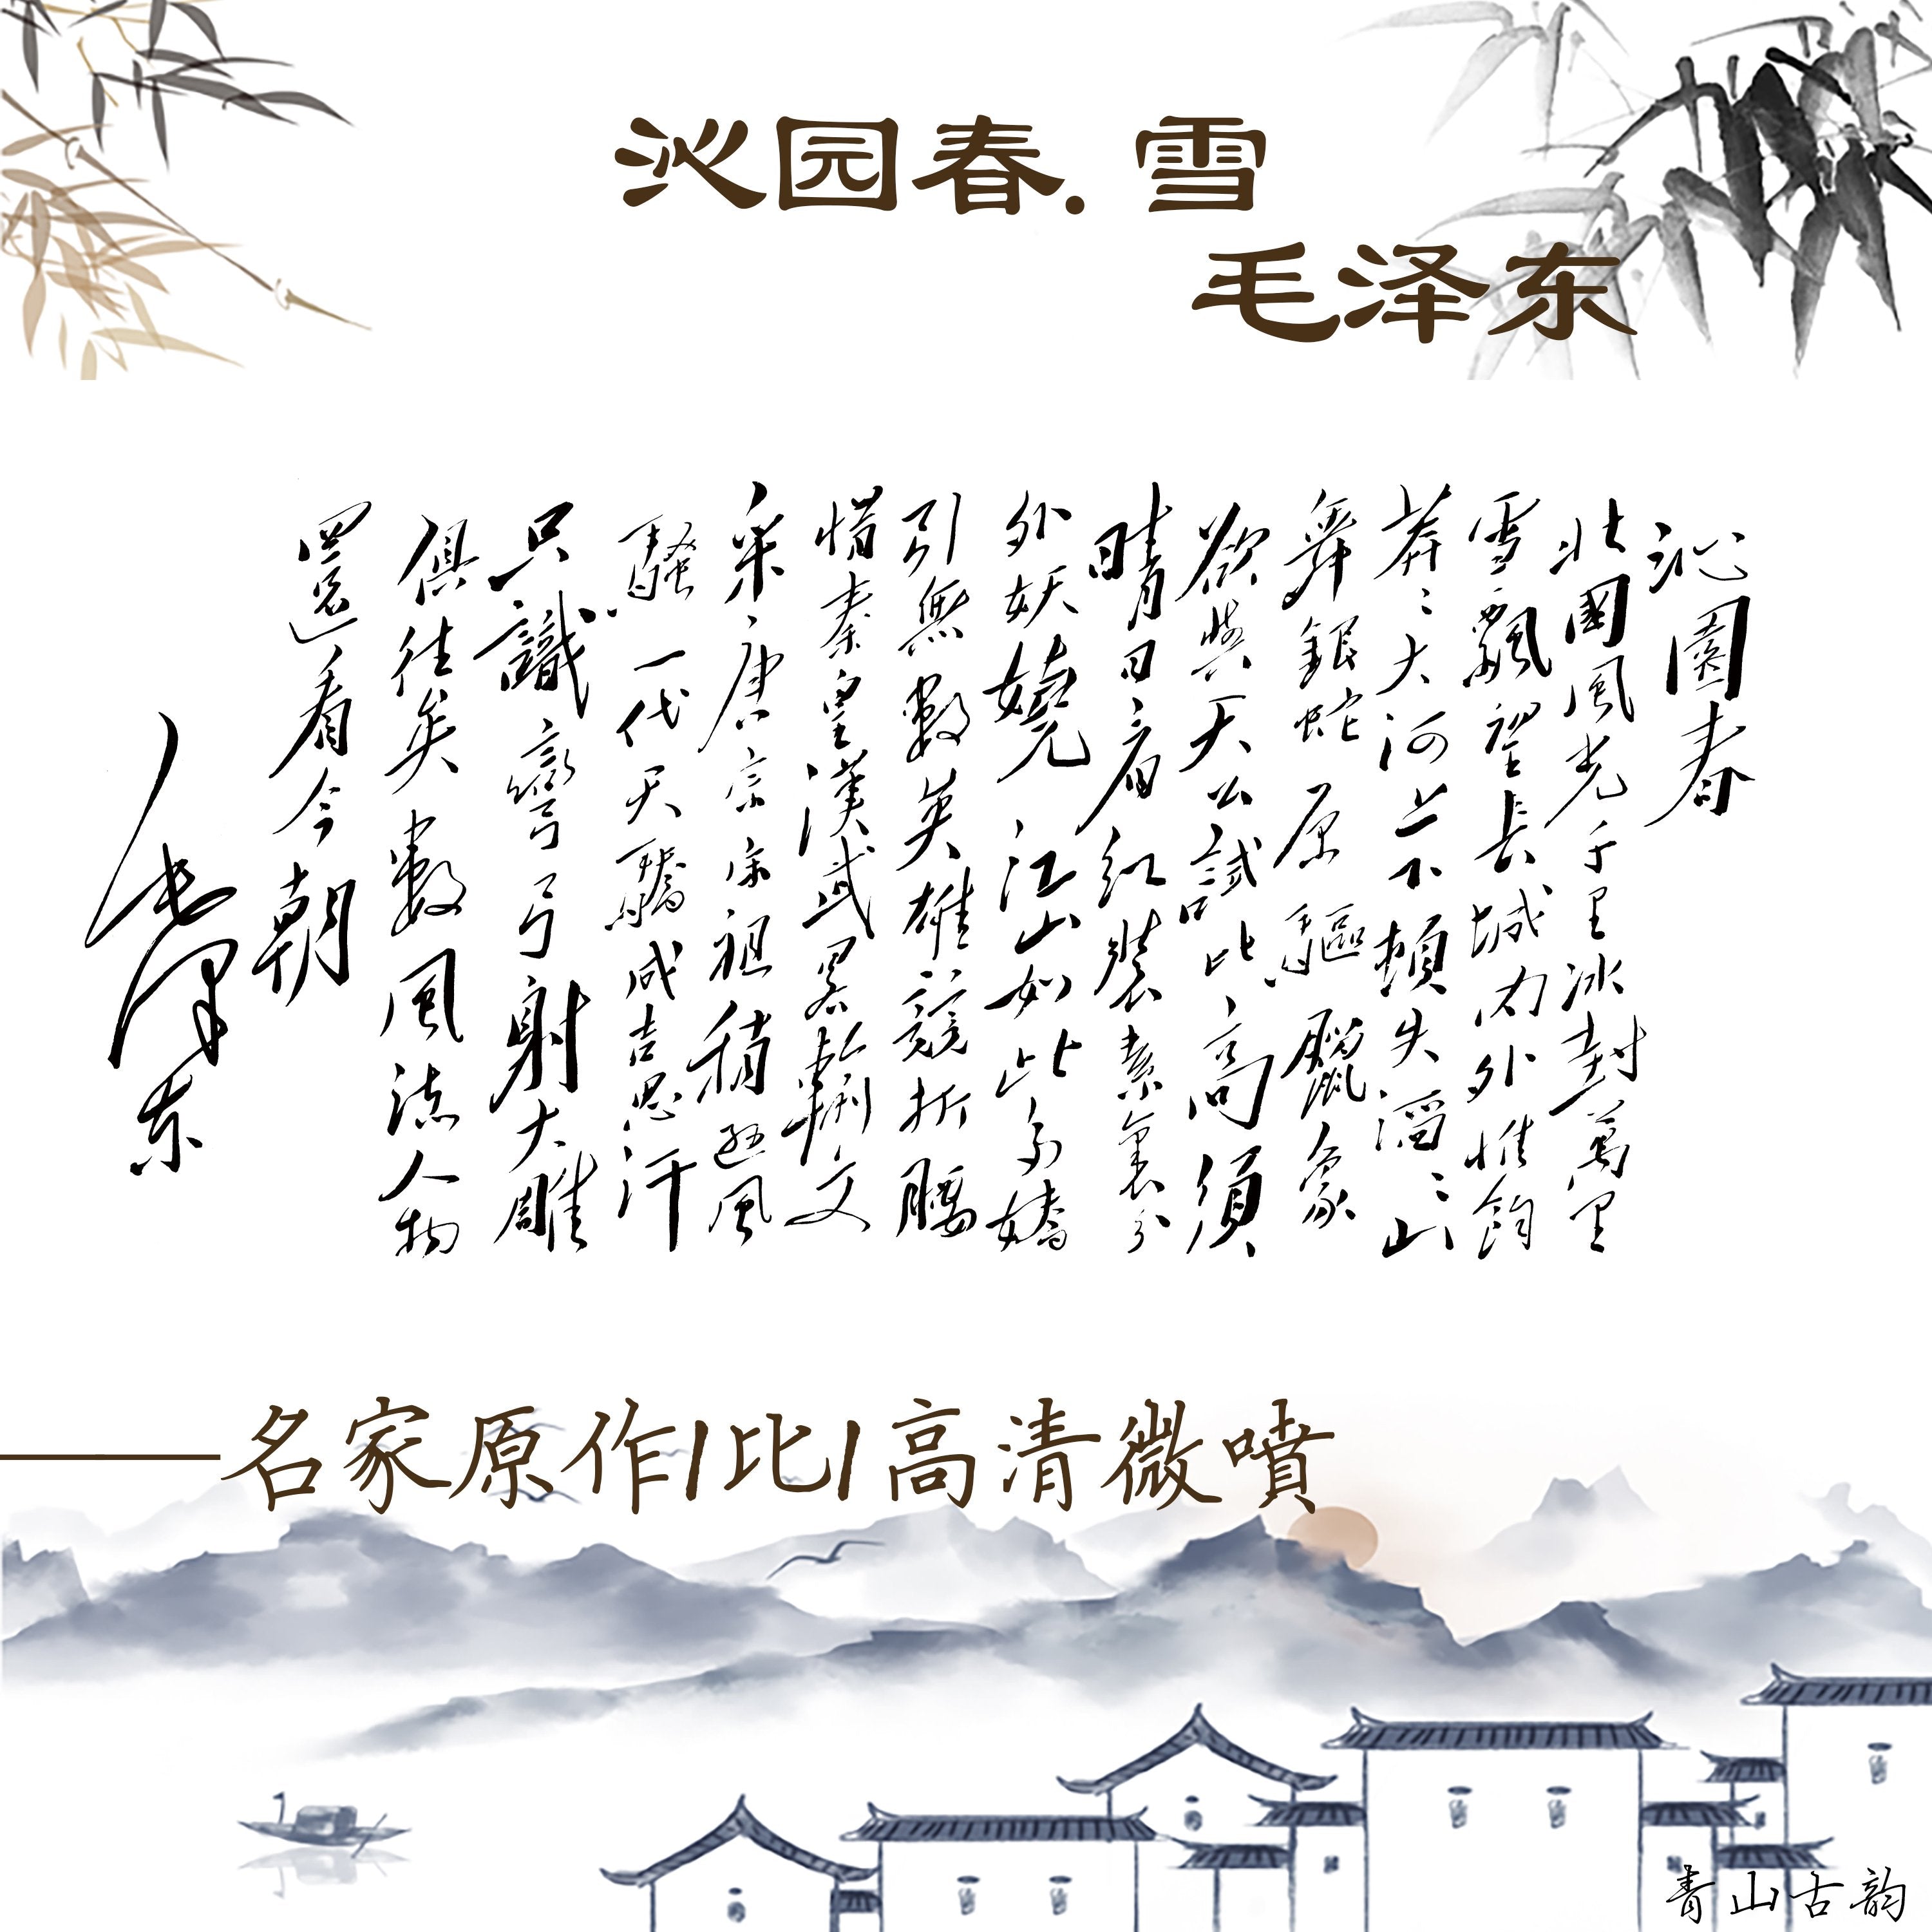 沁园春.雪
毛泽东
沁園春
北國風光千里冰封萬里
雪飄望長城内外惟餘
莽〻大河上下頓失滔〻山
舞銀蛇原驅臘象
欲與天公試比高須
晴日看紅裝素裹分
外妖嬈江山如此多嬌
引無數英雄競折腰
惜秦皇漢武畧輸文
采唐宗宋祖稍遜風
騷一代天驕成吉思汗
只識彎弓射大雕
俱往矣數風流人物
還看今朝
毛澤東
——名家原作/比/高清微噴
青山古韵